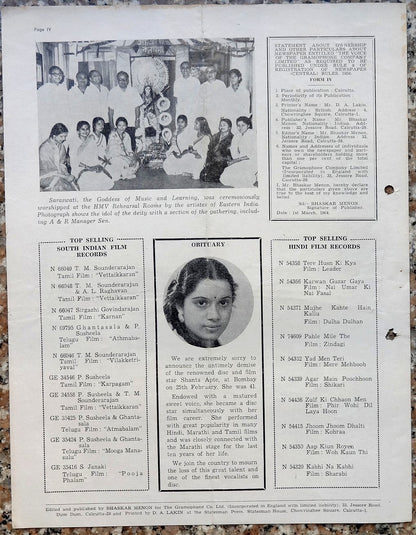 Page IV
Saraswati, the Goddess of Music and Learning, was ceremoniously
worshipped at the HMV Rehearsal Rooms by the artistes of Eastern India.
Photograph shows the idol of the deity with a section of the gathering, includ-
ing A & R Manager Sen.
STATEMENT ABOUT OWNERSHIP
AND OTHER PARTICULARS ABOUT
NEWSPAPER ENTITLED "THE VOICE
OF THE GRAMOPHONE COMPANY
LIMITED" AS REQUIRED TO BE
PUBLISHED UNDER RULE 8 OF
REGISTRATION OF NEWSPAPER
(CENTRAL) RULES, 1956
FORM IV
1. Place of publication: Calcutta.
2. Periodicity of its Publication:
Monthly.
3. Printer's Name: Mr. D. A. Lakin.
Nationality: British. Address: 4,
Chowringhee Square, Calcutta-1.
4. Publisher's Name: Mr Bhaskar
Menon. Nationality: Indian. Address: 33, Jessore Road, Calcutta-28.
5. Editor's Name: Mr Bhaskar Menon.
Nationality: Indian. Address: 33,
Jessore Road, Calcutta-28.
6. Names and Addresses of individuals
who own the newspaper and partners or shareholders holding
more than one per cent of the total
capital:
The Gramophone Company Limited
(Incorporated in England with
limited liability) 33, Jessore Road,
Calcutta-28.
I, Mr. Bhaskar Menon, hereby declare
that the particulars given above are
true to the best of my knowledge and
belief.
Sd/- BHASKAR MENON
Signature of Publisher.
Date: 1st March, 1964
TOP SELLING
SOUTH INDIAN FILM
RECORDS
N 66049 T. M. Sounderarajan
Tamil Film: "Vettaikkaran"
N 66048 T. M. Sounderarajan
& A. L. Raghavan
Tamil Film: "Vettaikkaran"
N 66047 Sirgazhi Govindarajan
Tamil Film: "Karnan"
N 09795 Ghantasala & P.
Susheela
Telugu Film: "Athmabalam"
N 66046 T. M. Sounderarajan
Tamil Film: "Vilakketriyaval"
GE 34546 P. Susheela
Tamil Film: "Karpagam"
GE 34558 P. Susheela & T. M.
Sounderarajan
Tamil Film: "Vettaikkaran"
GE 33425 P. Susheela & Ghantasala
Telugu Film: "Atmabalam"
GE 33424 P. Susheela & Ghantasala
Telugu Film: "Mooga Manasulu"
GE 33416 S. Janaki
Telugu Film: "Pooja
Phalam"
OBITUARY
We are extremely sorry to
announce the untimely demise
of the renowned disc and film
star Shanta Apte, at Bombay
on 25th February. She was 41.
Endowed with a matured
sweet voice, she became a disc
star simultaneously with her
film career. She performed
with great popularity in many
Hindi, Marathi and Tamil films
and was closely connected with
the Marathi stage for the last
ten years of her life.
We join the country to mourn
the loss of this great talent and
one of the finest vocalists on
disc.
TOP SELLING
HINDI FILM RECORDS
N 54358 Tere Husn Ki Kya
Film: Leader
N 54366 Karwan Guzar Gaya
Film: Nai Umar Ki
Nai Fasal
N 54371 Mujhe Kahte Hain
Kallu
Film: Dulha Dulhan
N 74609 Pahle Mile The
Film: Zindagi
N 54332 Yad Men Teri
Film: Mere Mehboob
N 54339 Agar Main Poochhoon
Film: Shikari
N 54436 Zulf Ki Chhaon Men
Film: Phir Wohi Dil
Laya Hoon
N 54415 Jhoom Jhoom Dhalti
Film: Kohraa
N 54350 Aap Kiun Royen
Film: Woh Kaun Thi
N 54320 Kabhi Na Kabhi
Film: Sharabi
Edited and published by BHASKAR MENON for The Gramophone Co. Ltd. (Incorporated in England with limited liability) 33, Jessore Road,
Dum Dum, Calcutta-28 and Printed by D. A. LAKIN at the Statesman Press, Statesman House, Chowringhee Square, Calcutta-1.